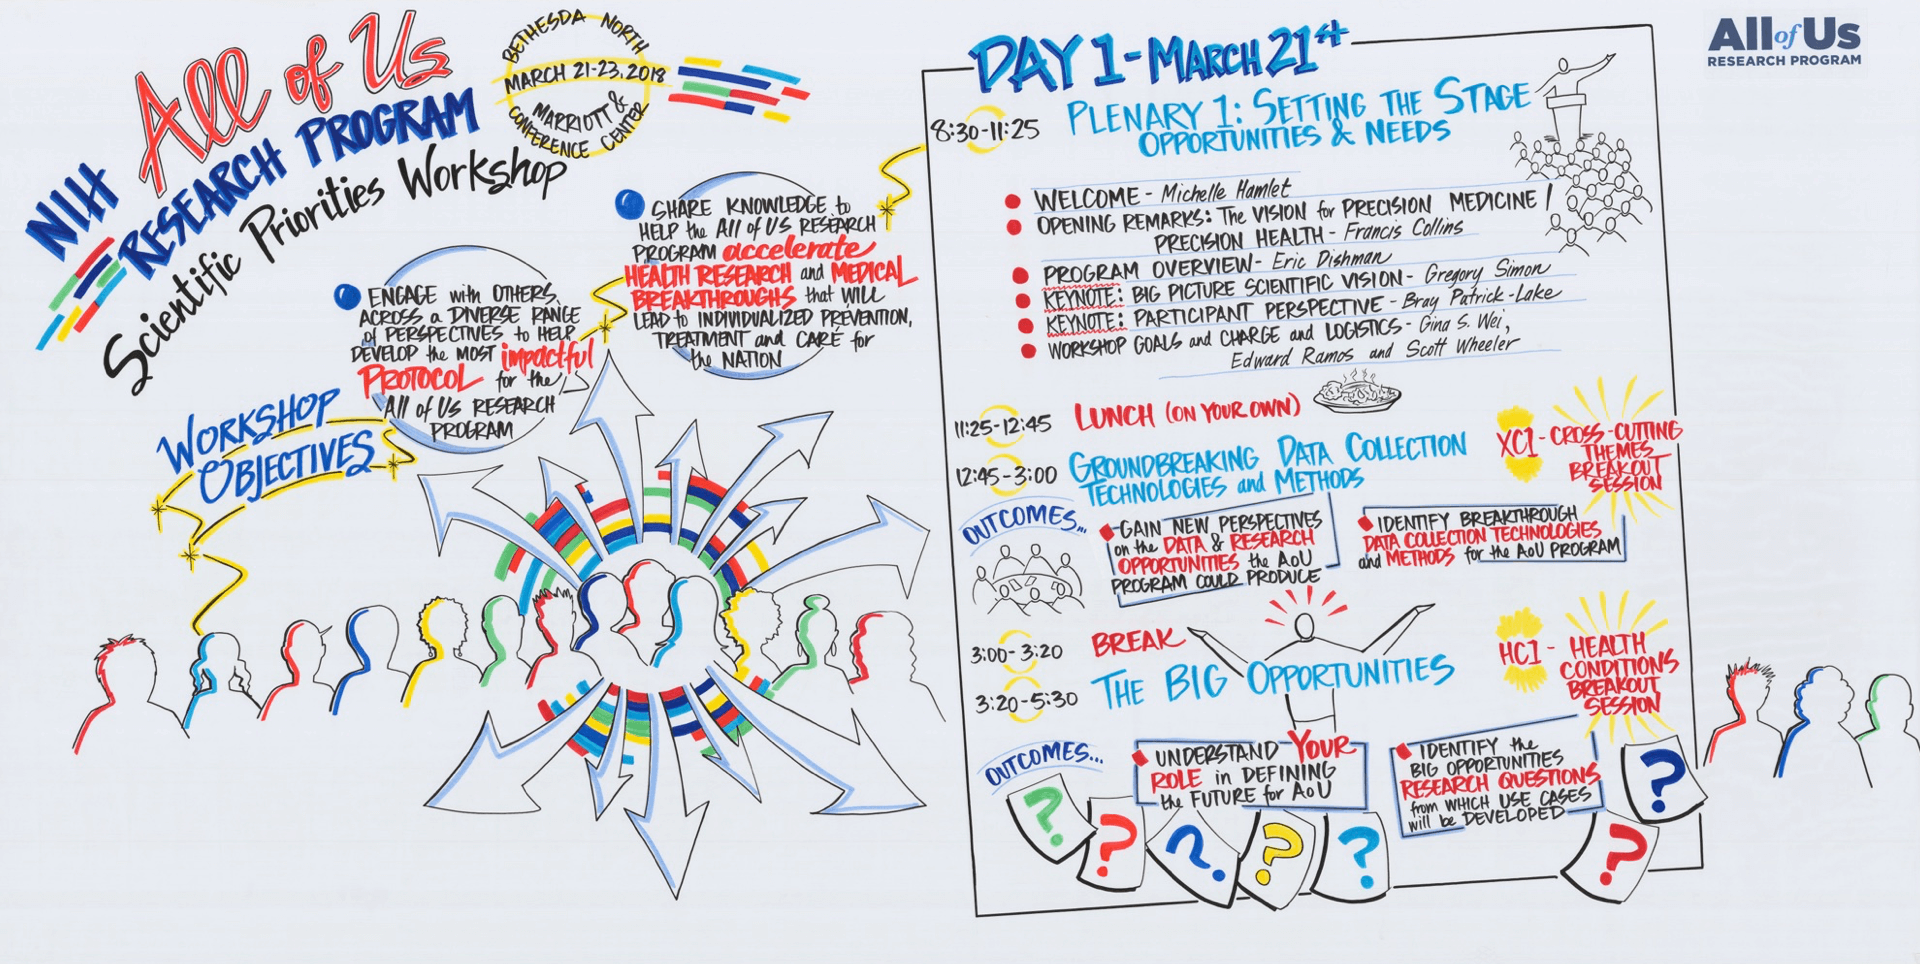 NIH All of Us
RESEARCH PROGRAM
Scientific Priorities Workshop
BETHESDA NORTH
MARCH 21-23, 2018
MARRIOTT &
CONFERENCE CENTER
WORKSHOP
OBJECTIVES
ENGAGE with OTHERS
ACROSS a DIVERSE RANGE
of PERSPECTIVES to HELP
DEVELOP the MOST impactful
PROTOCOL for the
All of Us RESEARCH
PROGRAM
SHARE KNOWLEDGE to
HELP the All of US RESEARCH
PROGRAM accelerate
HEALTH RESEARCH and MEDICAL
BREAKTHROUGHS that WILL
LEAD to INDIVIDUALIZED PREVENTION,
TREATMENT and CARE for
the NATION
DAY 1 - MARCH 21st
8:30-11:25
PLENARY 1: SETTING THE STAGE
OPPORTUNITIES & NEEDS
WELCOME - Michelle Hamlet
OPENING REMARKS: The VISION for PRECISION MEDICINE /
PRECISION HEALTH - Francis Collins
PROGRAM OVERVIEW - Eric Dishman
KEYNOTE: BIG PICTURE SCIENTIFIC VISION - Gregory Simon
KEYNOTE: PARTICIPANT PERSPECTIVE - Bray Patrick-Lake
WORKSHOP GOALS and CHARGE and LOGISTICS - Gina S. Wei,
Edward Ramos and Scott Wheeler
11:25-12:45
LUNCH (ON YOUR OWN)
12:45-3:00
GROUNDBREAKING DATA COLLECTION
TECHNOLOGIES and METHODS
XC1 - CROSS-CUTTING
THEMES
BREAKOUT
SESSION
OUTCOMES...
GAIN NEW PERSPECTIVES
on the DATA & RESEARCH
OPPORTUNITIES the AoU
PROGRAM COULD PRODUCE
IDENTIFY BREAKTHROUGH
DATA COLLECTION TECHNOLOGIES
and METHODS for the AoU PROGRAM
3:00-3:20
BREAK
3:20-5:30
THE BIG OPPORTUNITIES
HC1 - HEALTH
CONDITIONS
BREAKOUT
SESSION
OUTCOMES...
UNDERSTAND YOUR
ROLE in DEFINING
the FUTURE for AoU
IDENTIFY the
BIG OPPORTUNITIES
RESEARCH QUESTIONS
from WHICH USE CASES
will be DEVELOPED
? ? ? ? ? ? ?
All of Us
RESEARCH PROGRAM